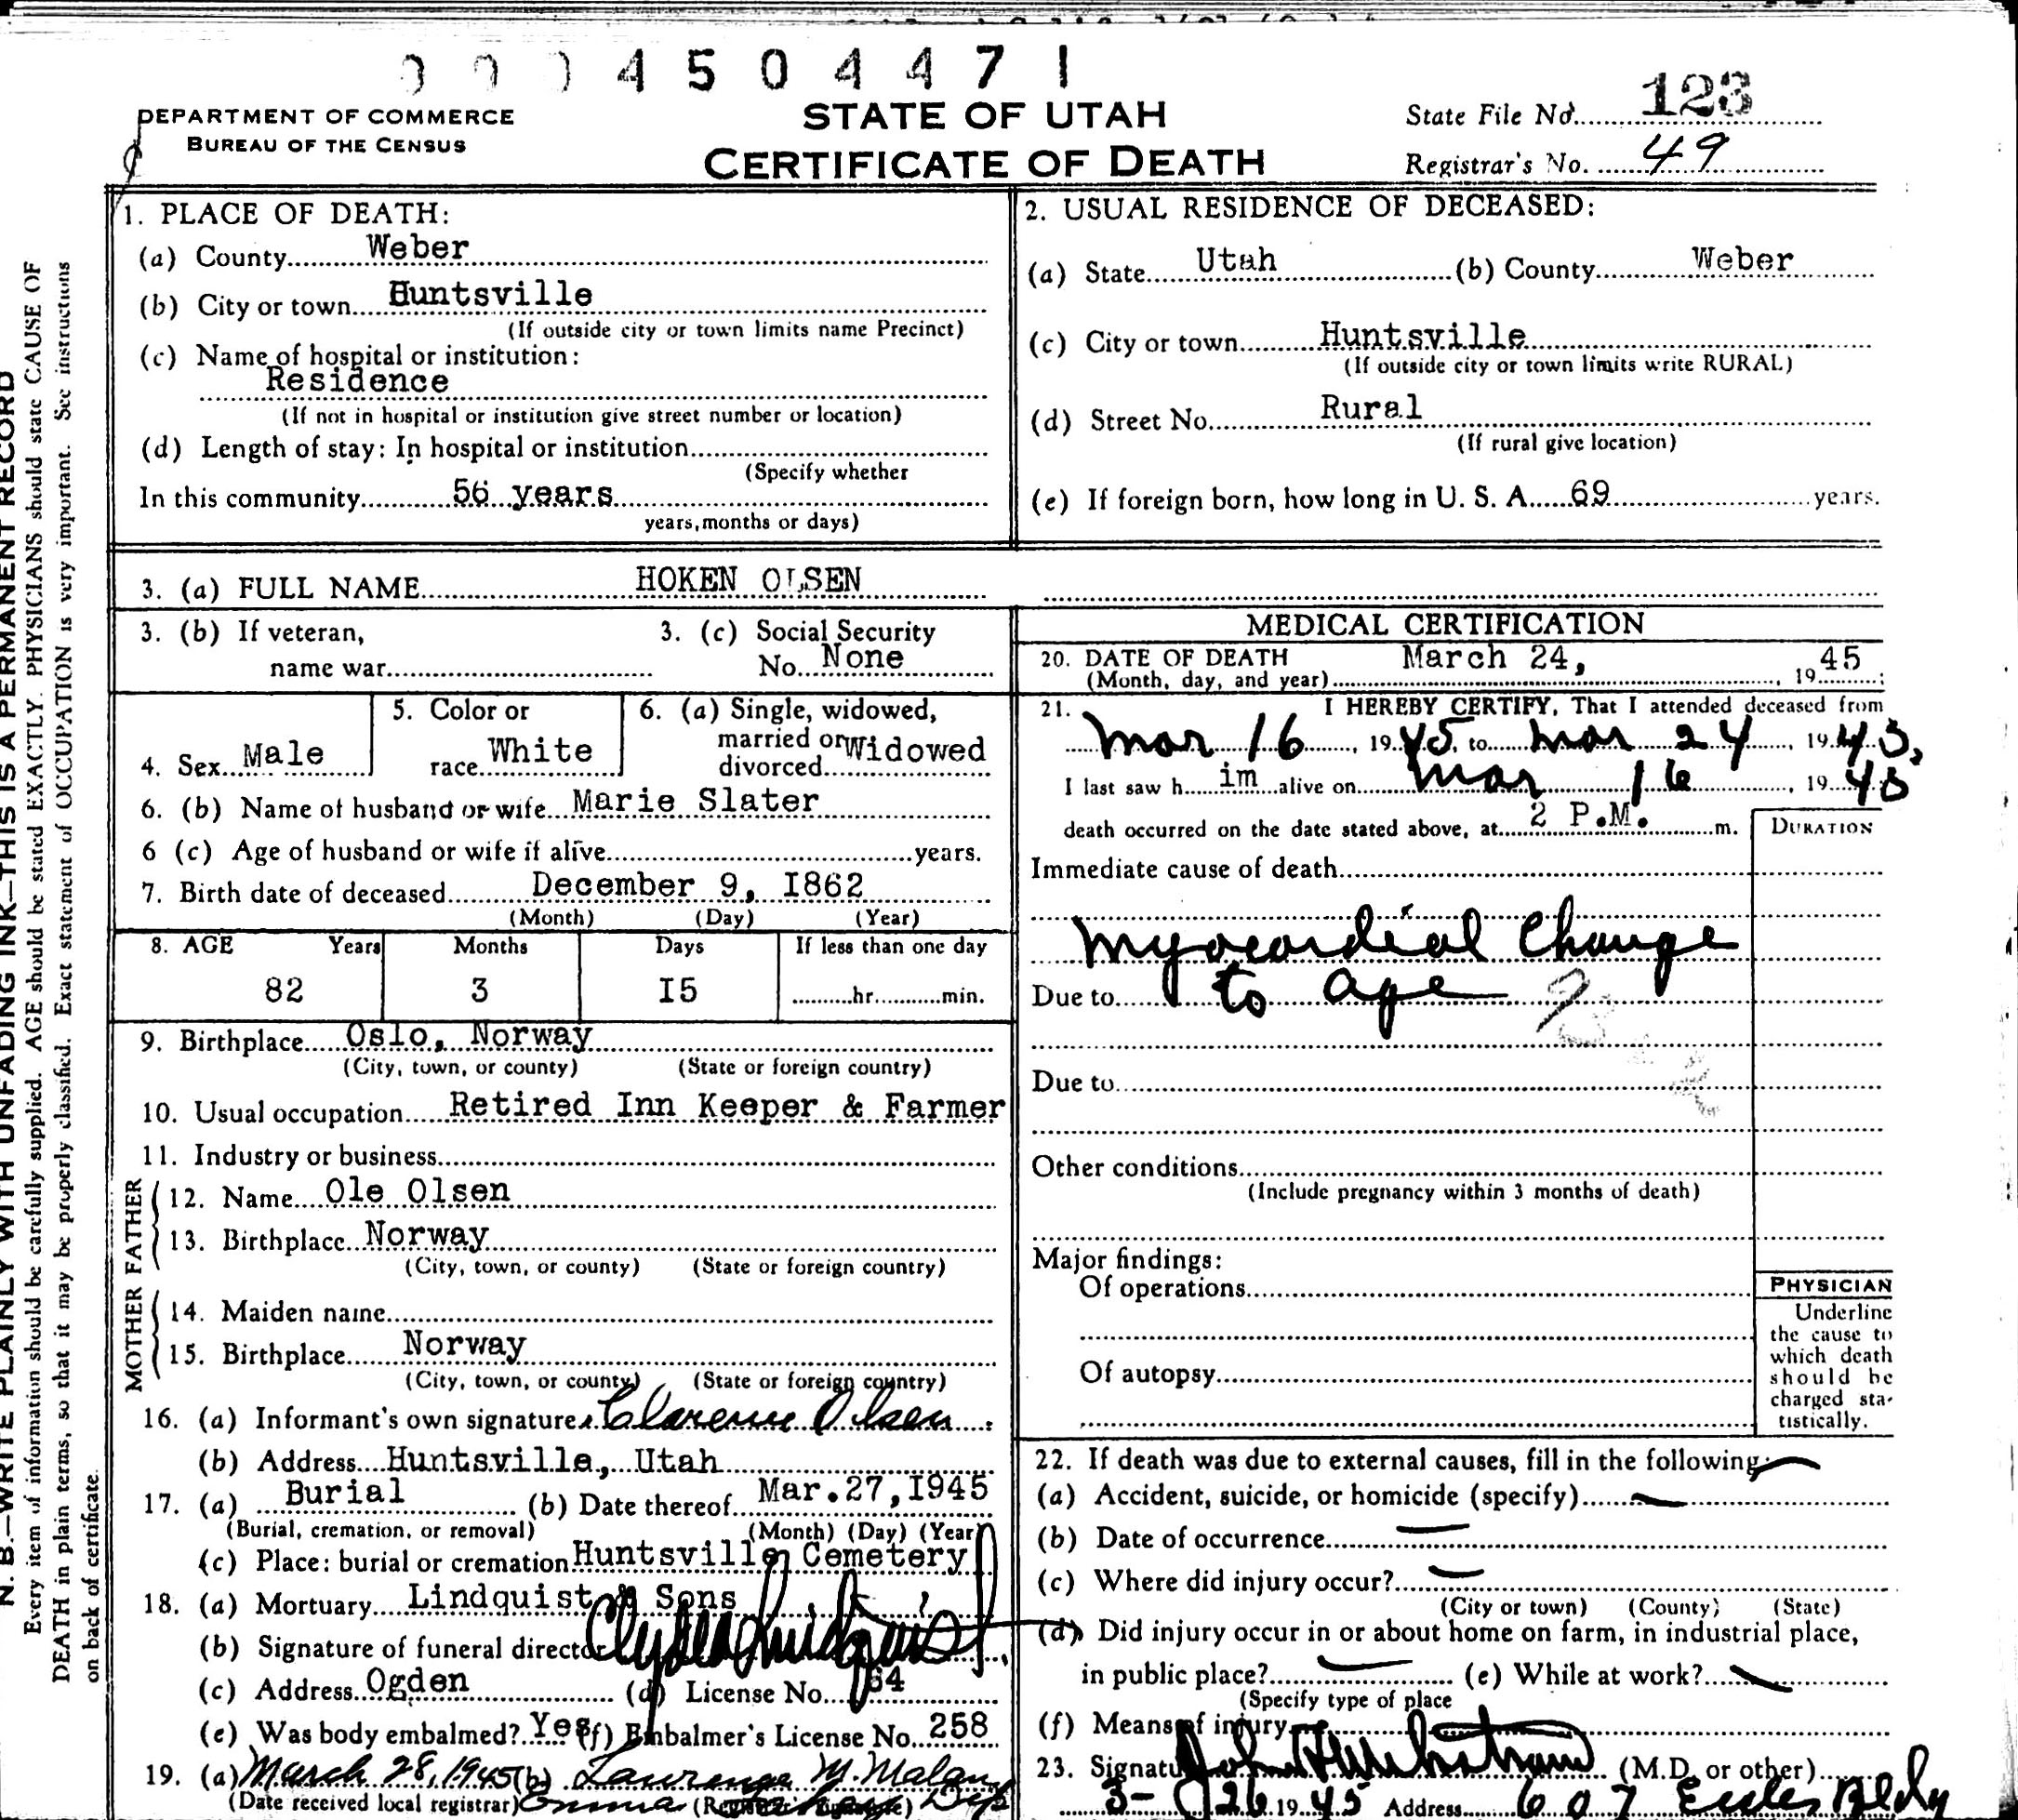 0004504471
DEPARTMENT OF COMMERCE
BUREAU OF THE CENSUS
STATE OF UTAH
CERTIFICATE OF DEATH
State File No. 123
Registrar's No. 49
N. B.—WRITE PLAINLY WITH UNFADING INK—THIS IS A PERMANENT RECORD
Every item of information should be carefully supplied. AGE should be stated EXACTLY. PHYSICIANS should state CAUSE OF
DEATH in plain terms, so that it may be properly classified. Exact statement of OCCUPATION is very important. See instructions
on back of certificate.
1. PLACE OF DEATH:
(a) County Weber
(b) City or town Huntsville
(If outside city or town limits name Precinct)
(c) Name of hospital or institution:
Residence
(If not in hospital or institution give street number or location)
(d) Length of stay: In hospital or institution
(Specify whether
In this community 56 years
years, months or days)
2. USUAL RESIDENCE OF DECEASED:
(a) State Utah (b) County Weber
(c) City or town Huntsville
(If outside city or town limits write RURAL)
(d) Street No. Rural
(If rural give location)
(e) If foreign born, how long in U. S. A. 69 years.
3. (a) FULL NAME HOKEN OLSEN
3. (b) If veteran,
name war
3. (c) Social Security
No. None
4. Sex Male
5. Color or
race White
6. (a) Single, widowed,
married or
divorced Widowed
6. (b) Name of husband or wife Marie Slater
6 (c) Age of husband or wife if alive years.
7. Birth date of deceased December 9, I862
(Month) (Day) (Year)
8. AGE Years Months Days If less than one day
82 3 I5 hr. min.
9. Birthplace Oslo, Norway
(City, town, or county) (State or foreign country)
10. Usual occupation Retired Inn Keeper & Farmer
11. Industry or business
FATHER
12. Name Ole Olsen
13. Birthplace Norway
(City, town, or county) (State or foreign country)
MOTHER
14. Maiden name
15. Birthplace Norway
(City, town, or county) (State or foreign country)
16. (a) Informant's own signature Clarence Olsen
(b) Address Huntsville, Utah
17. (a) Burial (b) Date thereof Mar.27,I945
(Burial, cremation, or removal) (Month) (Day) (Year)
(c) Place: burial or cremation Huntsville Cemetery
18. (a) Mortuary Lindquist & Sons
(b) Signature of funeral director
(c) Address Ogden (d) License No. 64
(e) Was body embalmed? Yes (f) Embalmer's License No. 258
19. (a) March 28, 1945 (b) Lawrence M. Malan
(Date received local registrar)
MEDICAL CERTIFICATION
20. DATE OF DEATH March 24, 1945
(Month, day, and year)
21. I HEREBY CERTIFY, That I attended deceased from
Mar 16, 1945, to Mar 24, 1945,
I last saw him alive on Mar 16, 1945
death occurred on the date stated above, at 2 P.M. m.
DURATION
Immediate cause of death
Myocardial Change
Due to to age
Due to
Other conditions
(Include pregnancy within 3 months of death)
Major findings:
Of operations
Of autopsy
PHYSICIAN
Underline
the cause to
which death
should be
charged sta-
tistically.
22. If death was due to external causes, fill in the following:
(a) Accident, suicide, or homicide (specify)
(b) Date of occurrence
(c) Where did injury occur?
(City or town) (County) (State)
(d) Did injury occur in or about home on farm, in industrial place,
in public place? (e) While at work?
(Specify type of place
(f) Means of injury
23. Signature (M.D. or other)
3-26 1945 Address 607 Eccles Bldg